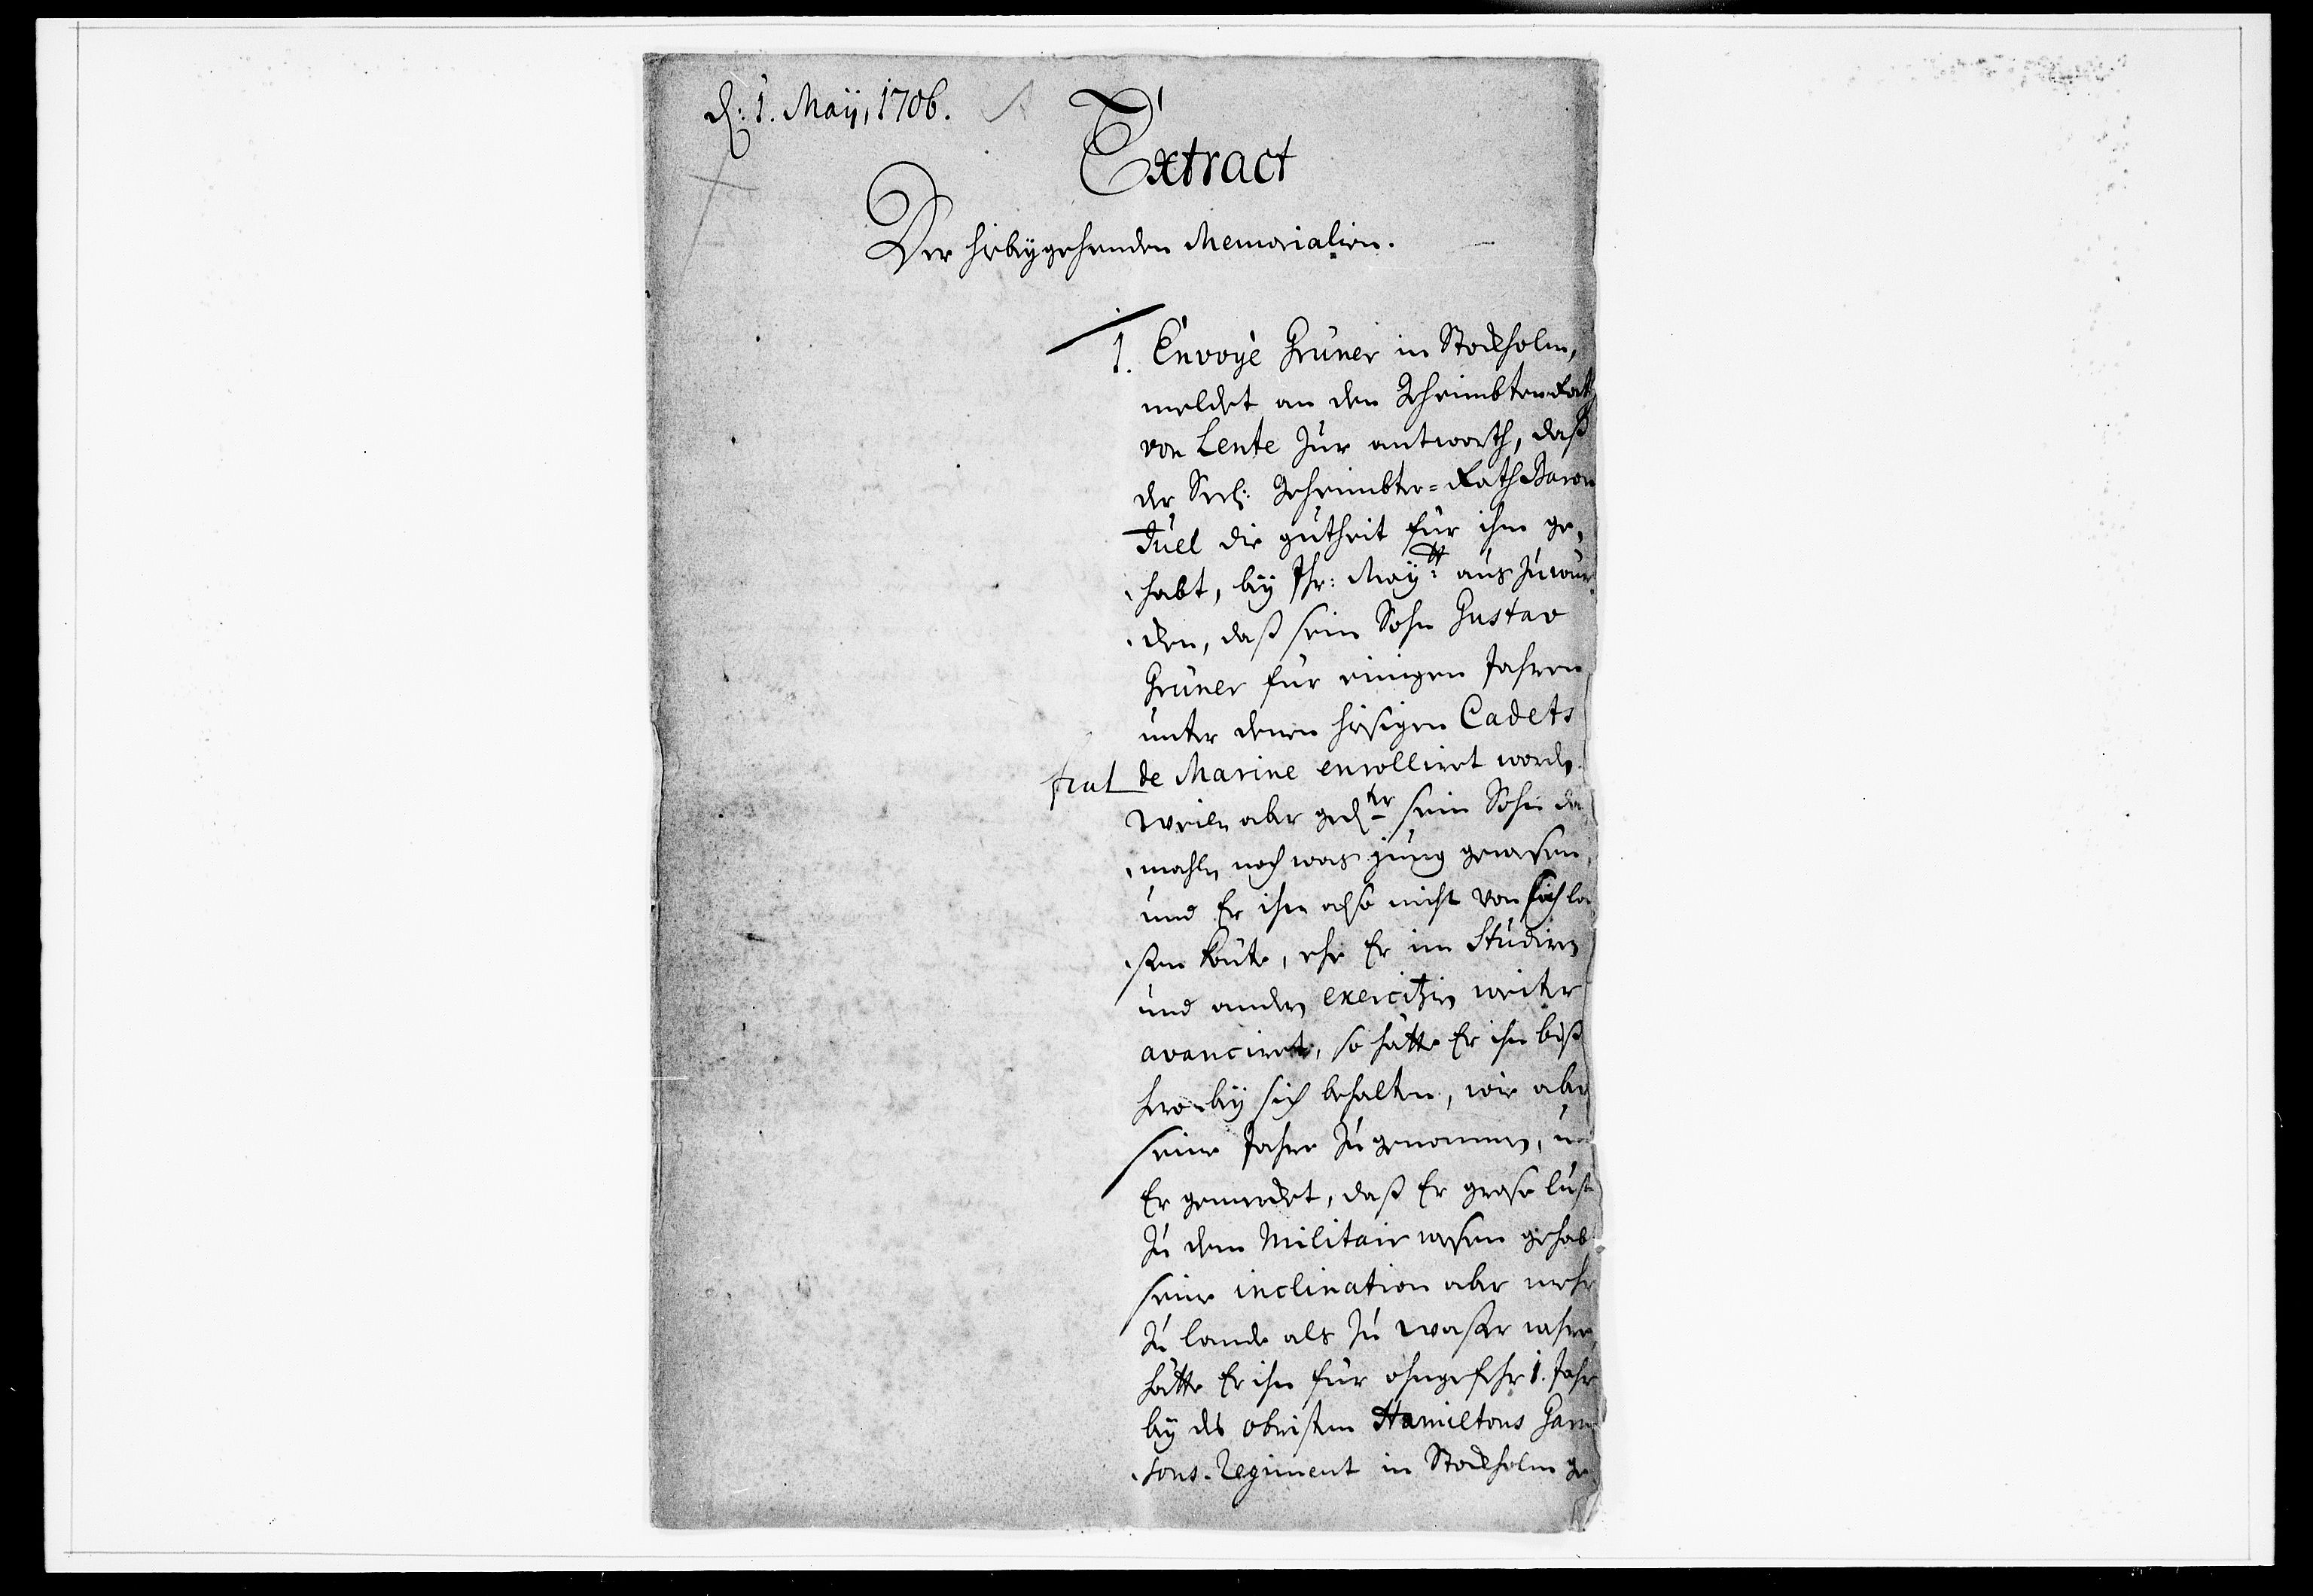 d: 1. Maÿ, 1706.
Extract
Der hiebeÿgehenden Memorialien.
1. Envoÿé Grüner in Stockholm,
meldet an den Geheimbten Rath
von Lente zur antworth, daß
der Seel: Geheimbter=Rath Baron
Juel die gütheit für ihm ge,
habt, beÿ Ihr: Maÿ:tt aus zuwür
den, daß sein Sohn Gustav
Grüner für einigen Jahren
unter denen hiesigen Cadets
de Marine enrolliret word.
Weiln aber ged.ter sein Sohn da
mahln noch was jung gewesen,
und Er ihn also nicht von sich la
ßen könte, ehe Er im Studiren
und andern exercitzien weiter
avanciret, so hätte Er ihn biß
hero beÿ sich behalten, wie aber
seine Jahre zu genommen, u
Er gemercket, daß Er große lust
zu dem Militair wesen gehab
seine inclination aber mehr
zu lande als zu waßer wehre,
hätte Er ihn für ohngefehr 1. Jahr
beÿ des obristen Hamiltons Garni
sons-Regiment in Stockholm ge